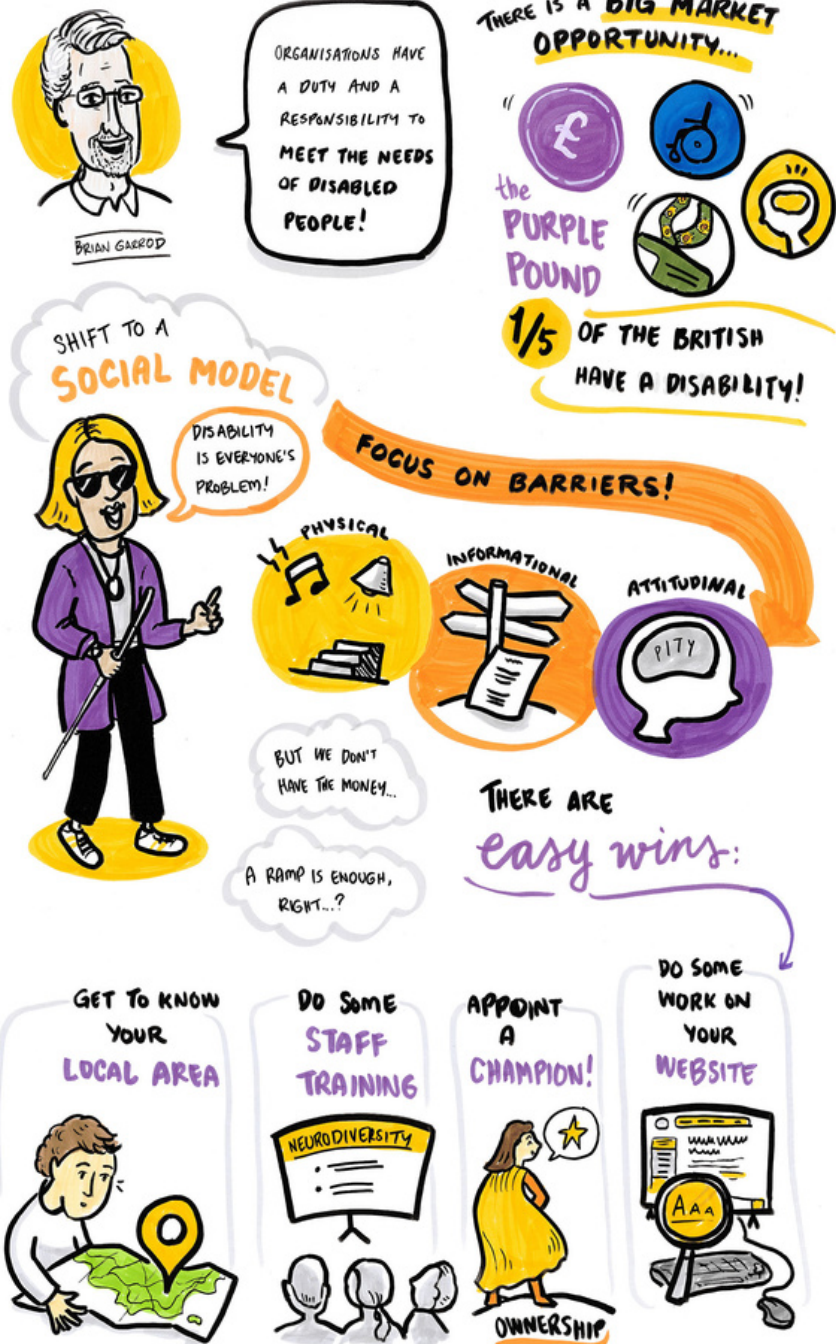 ORGANISATIONS HAVE
A DUTY AND A
RESPONSIBILITY TO
MEET THE NEEDS
OF DISABLED
PEOPLE!
BRIAN GARROD
THERE IS A BIG MARKET
OPPORTUNITY...
£
the
PURPLE
POUND
1/5 OF THE BRITISH
HAVE A DISABILITY!
SHIFT TO A
SOCIAL MODEL
DISABILITY
IS EVERYONE'S
PROBLEM!
FOCUS ON BARRIERS!
PHYSICAL
INFORMATIONAL
ATTITUDINAL
PITY
BUT WE DON'T
HAVE THE MONEY...
A RAMP IS ENOUGH,
RIGHT...?
THERE ARE
easy wins:
GET TO KNOW
YOUR
LOCAL AREA
DO SOME
STAFF
TRAINING
NEURODIVERSITY
APPOINT
A
CHAMPION!
OWNERSHIP
DO SOME
WORK ON
YOUR
WEBSITE
AAA